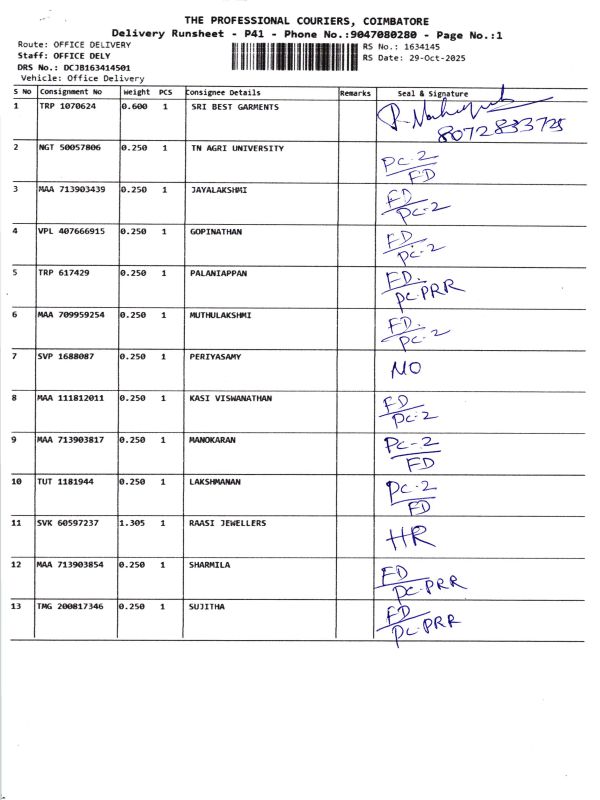 THE PROFESSIONAL COURIERS, COIMBATORE
Delivery Runsheet - P41 - Phone No.:9047080280 - Page No.:1
Route: OFFICE DELIVERY
RS No.: 1634145
Staff: OFFICE DELY
RS Date: 29-Oct-2025
DRS No.: DCJB163414501
Vehicle: Office Delivery
S No Consignment No Weight PCS Consignee Details Remarks Seal & Signature
1 TRP 1070624 0.600 1 SRI BEST GARMENTS
8072833725
2 NGT 50057806 0.250 1 TN AGRI UNIVERSITY PC-2
FD
3 MAA 713903439 0.250 1 JAYALAKSHMI FD
PC-2
4 VPL 407666915 0.250 1 GOPINATHAN FD
PC-2
5 TRP 617429 0.250 1 PALANIAPPAN FD.
PC.PRR
6 MAA 709959254 0.250 1 MUTHULAKSHMI FD.
PC-2
7 SVP 1688087 0.250 1 PERIYASAMY NO
8 MAA 111812011 0.250 1 KASI VISWANATHAN FD
PC-2
9 MAA 713903817 0.250 1 MANOKARAN PC-2
FD
10 TUT 1181944 0.250 1 LAKSHMANAN PC-2
FD
11 SVK 60597237 1.305 1 RAASI JEWELLERS HR
12 MAA 713903854 0.250 1 SHARMILA FD
PC.PRR
13 TMG 200817346 0.250 1 SUJITHA FD
PC.PRR